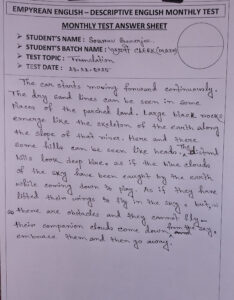 EMPYREAN ENGLISH – DESCRIPTIVE ENGLISH MONTHLY TEST
MONTHLY TEST ANSWER SHEET
➤ STUDENT'S NAME : Sourav Banerjee
➤ STUDENT'S BATCH NAME :
➤ TEST TOPIC : Translation
➤ TEST DATE :
The car starts moving forward continuously.
The day sand lines can be seen in some
places of the parched land. Large black rocks
emerge like the skeleton of the earth along
the slope of that river. Here and there
some hills can be seen like heads. The distant
hills look deep blue as if the blue clouds
of the sky have been caught by the earth
while coming down to play. As if they have
lifted their wings to fly in the sky, but
there are obstacles and they cannot fly
their companion clouds come down from the sky,
embrace them and then go away.